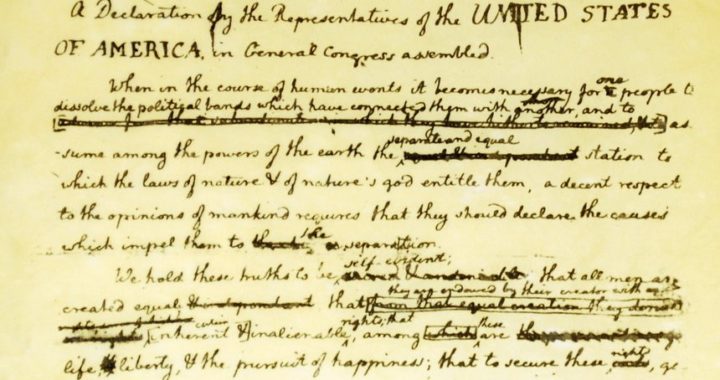 A Declaration by the Representatives of the UNITED STATES
OF AMERICA, in General Congress assembled.
When in the course of human events it becomes necessary for one people to
dissolve the political bands which have connected them with another, and to
as
separate and equal
-sume among the powers of the earth the equal & independent station to
which the laws of nature & of nature's god entitle them, a decent respect
to the opinions of mankind requires that they should declare the causes
which impel them to the separation.
self-evident;
We hold these truths to be sacred & undeniable that all men are
they are endowed by their creator with
created equal & independent that from that equal creation they
rights; that these
inherent & inalienable, among which are
rights
life & liberty, & the pursuit of happiness; that to secure these ends, go-